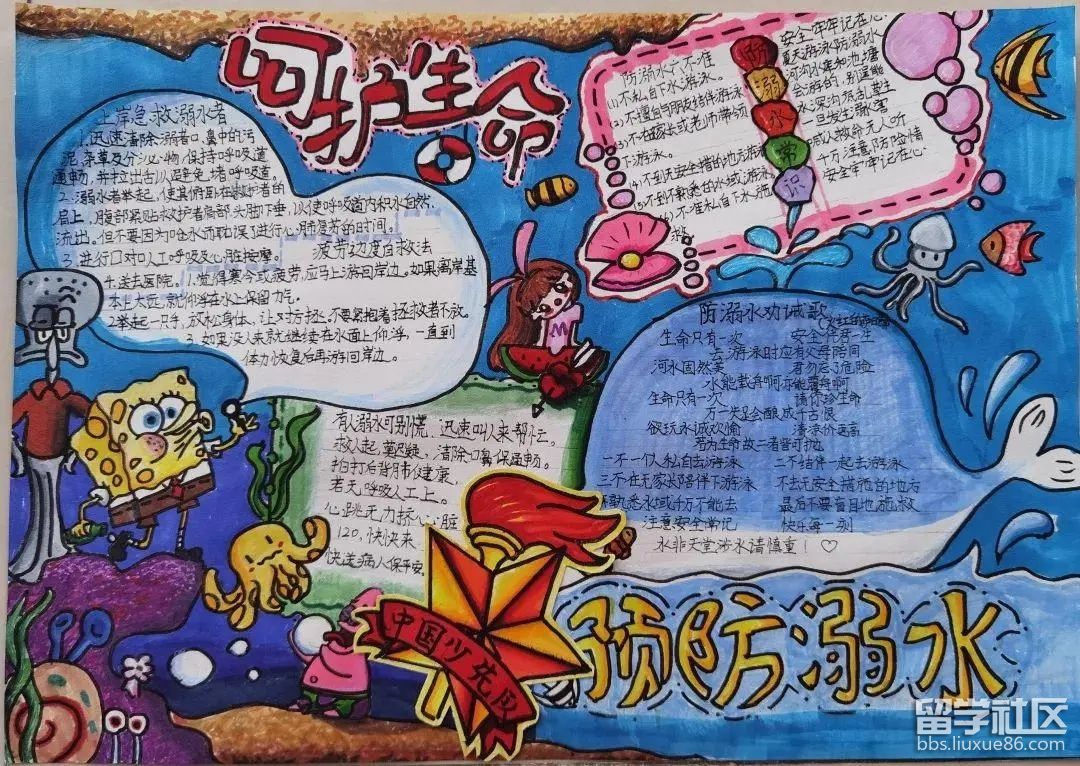 呵护生命
上岸急救溺水者
1.迅速清除溺者口、鼻中的污
泥、杂草及分泌物,保持呼吸道
通畅,并拉出舌头,以避免堵呼吸道。
2.溺水者举起,使其俯卧在救护者的
肩上,腹部紧贴救护者肩部,头脚下垂,以使呼吸道内积水自然
流出。但不要因为呛水而耽误了进行心肺复苏的时间。
3.进行口对口人工呼吸及心脏按摩。
4.送去医院。
疲劳过度自救法
1.觉得寒冷或疲劳,应马上游回岸边。如果离岸甚
太远,就仰浮在水上保留力气。
2.举起一只手,放松身体,让对方拯,不要紧抱着拯救者不放。
3.如果没人来就继续在水面上仰浮,一直到
体力恢复后再游回岸边。
防溺水六不准
(1)不私自下水游泳。
(2)不擅自与朋友结伴游泳
(3)不在家长或老师带领
下游泳。
(4)不到无安全措的地方游
(5)不到不熟悉的水域游泳
(6)不准私自下水施
防溺水常识
安全牢牢记在心
夏天游泳防溺水
一旦发生溺害
喊人救命无人听
千万注意防险情
安全牢牢记在心
有人溺水可别慌,迅速叫人来帮忙。
救人起,莫迟疑,清除口鼻保通畅。
拍打后背用巾健康
若无呼吸人工上。
心跳无力挤心脏
120,快快来
快送病人保平安。
防溺水劝诫歌
生命只有一次 安全伴君一生
去游泳时应有父母陪同
河水固然美 君勿忘了危险
水能载舟啊亦能覆舟啊
生命只有一次 请你珍生命
万一失足会酿成千古恨
欲玩水诚欢愉 清凉价更高
若为生命故二者皆可抛
一不一个人私自去游泳 二不结伴一起去游泳
三不在无家长陪伴下游泳 不去无安全措施的地方
不熟悉水域千万不能去 最后不要盲目地施救
注意安全常记 快乐每一刻
水非天堂涉水请慎重!♡
中国少先队
预防溺水
留学社区
bbs.liuxue86.com